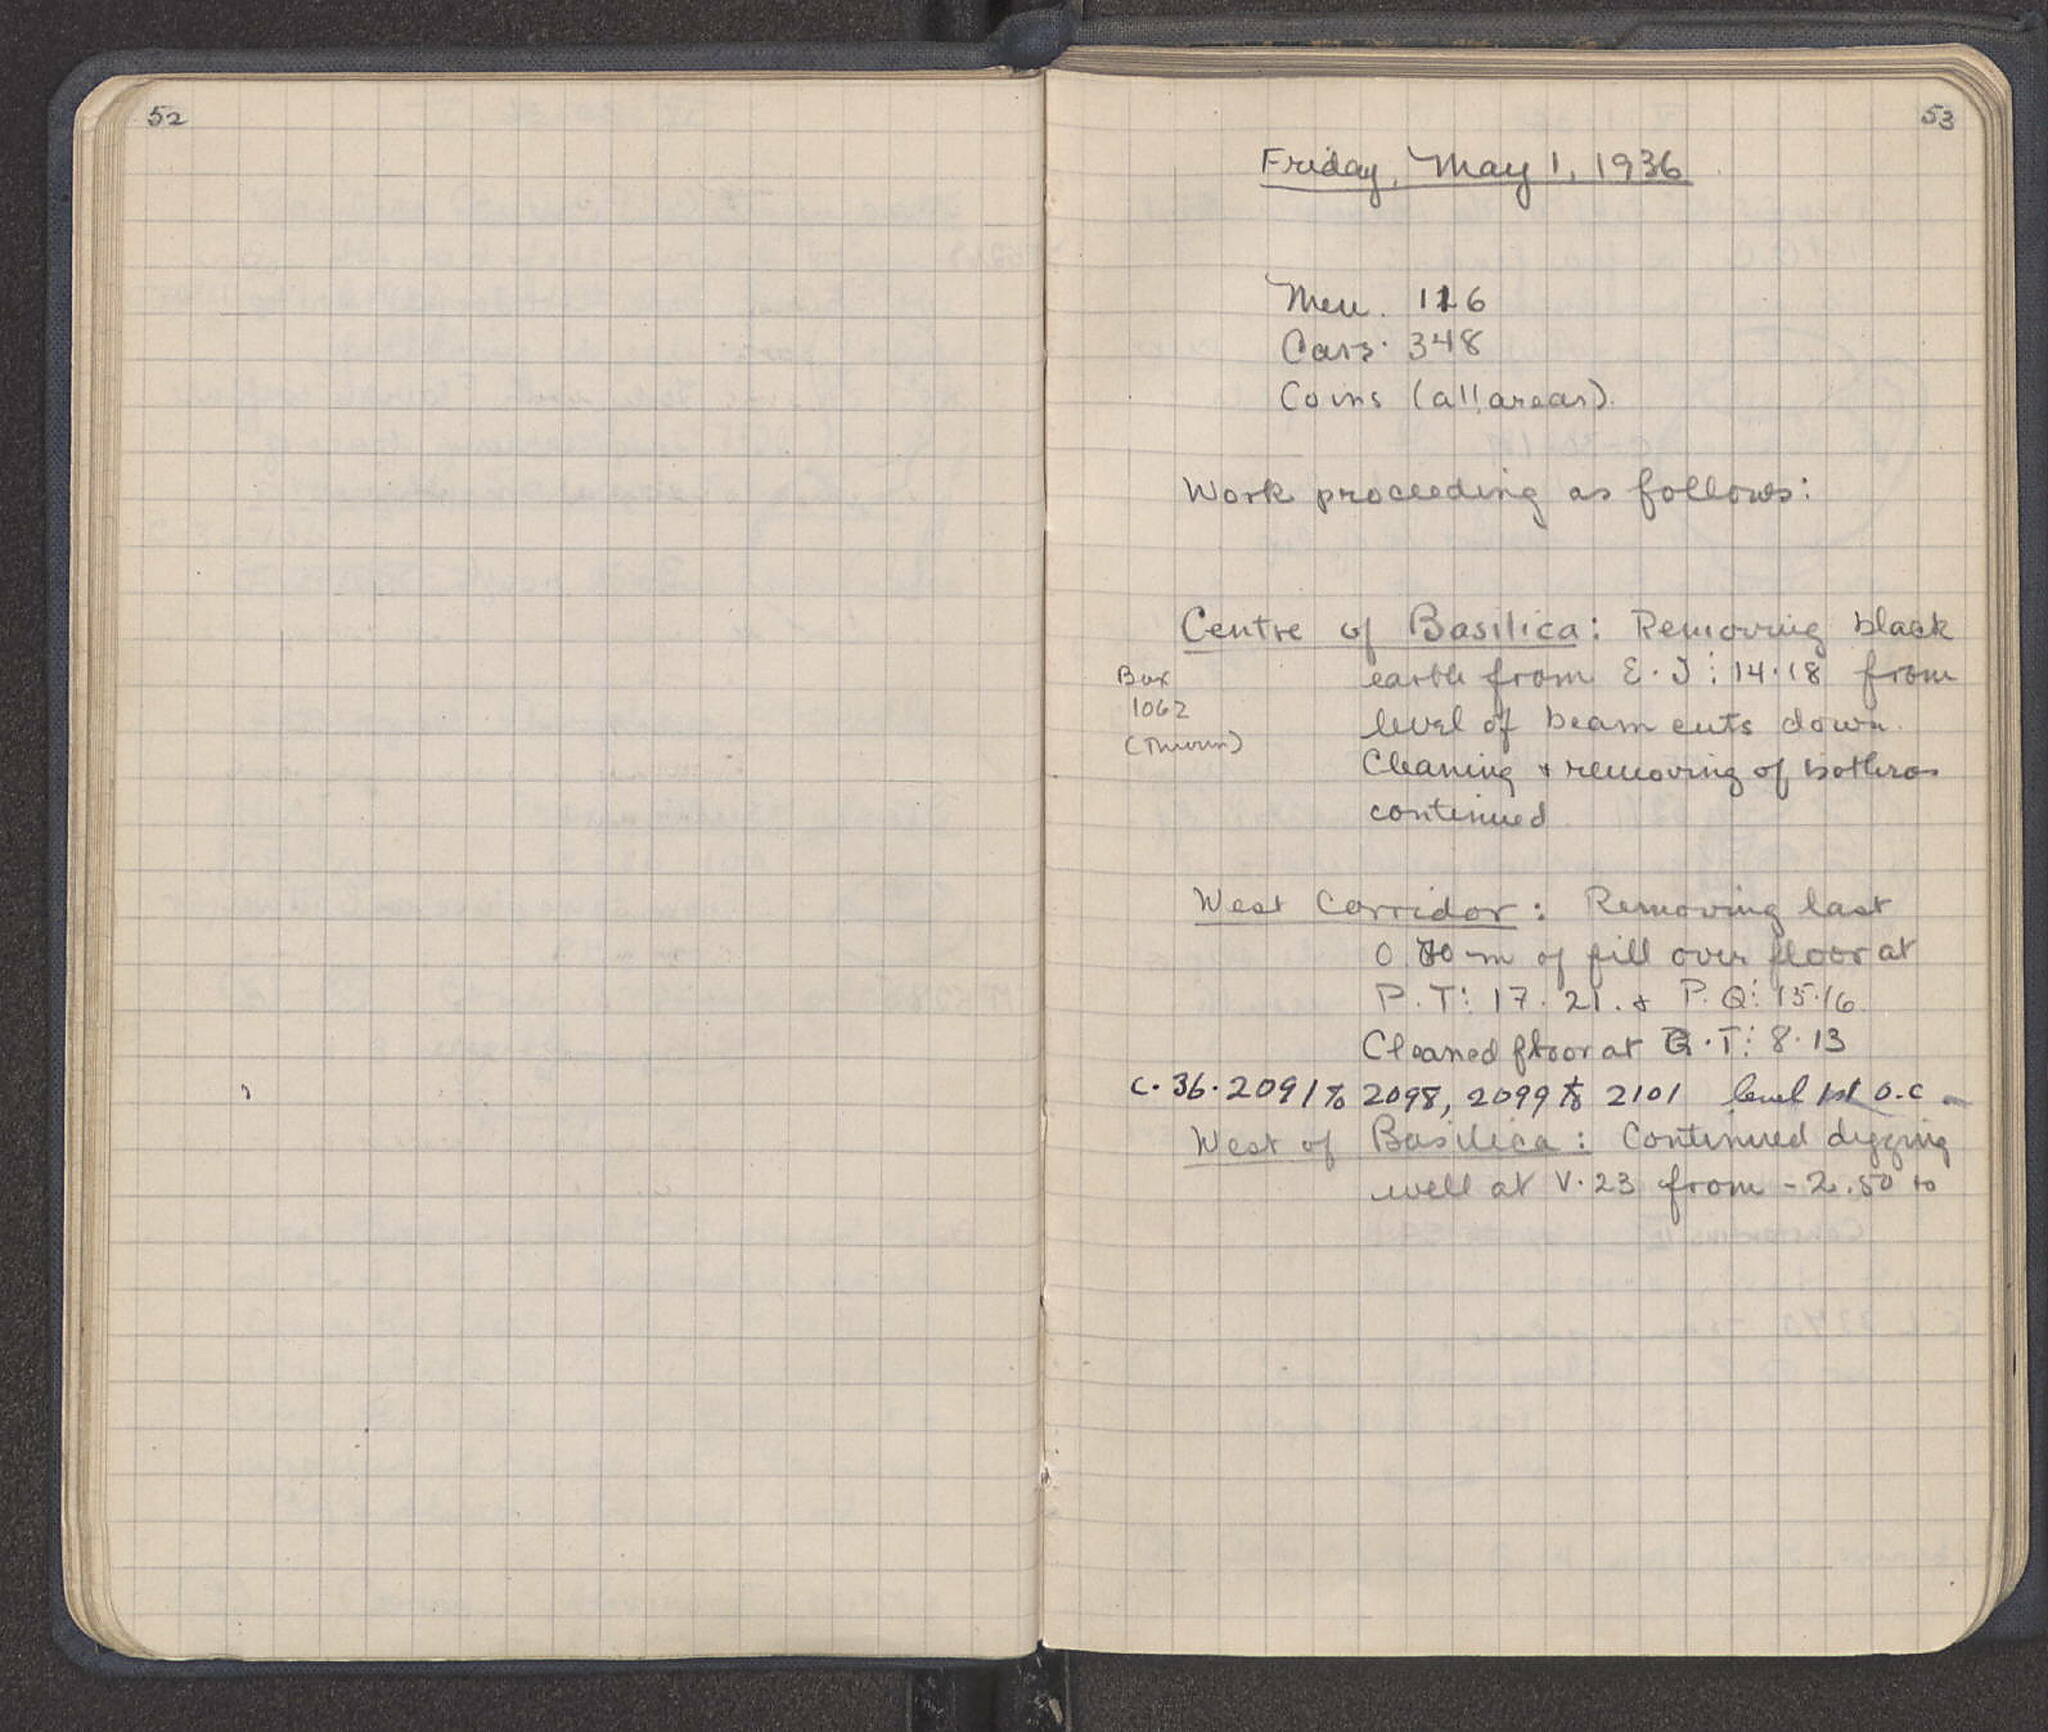 52
53
Friday, May 1, 1936
Men. 116
Cars. 348
Coins (all areas).
Work proceeding as follows:
Centre of Basilica: Removing black
earth from E-J: 14-18 from
level of beam cuts down.
Cleaning & removing of bothros
continued
Box
1062
(Thrown)
West Corridor: Removing last
0.70 m of fill over floor at
P-T: 17-21. & P-Q: 15-16.
Cleaned floor at Q-T: 8-13
C-36-2091 to 2098, 2099 to 2101 level 1st O.C
West of Basilica: Continued digging
well at V-23 from -2.50 to